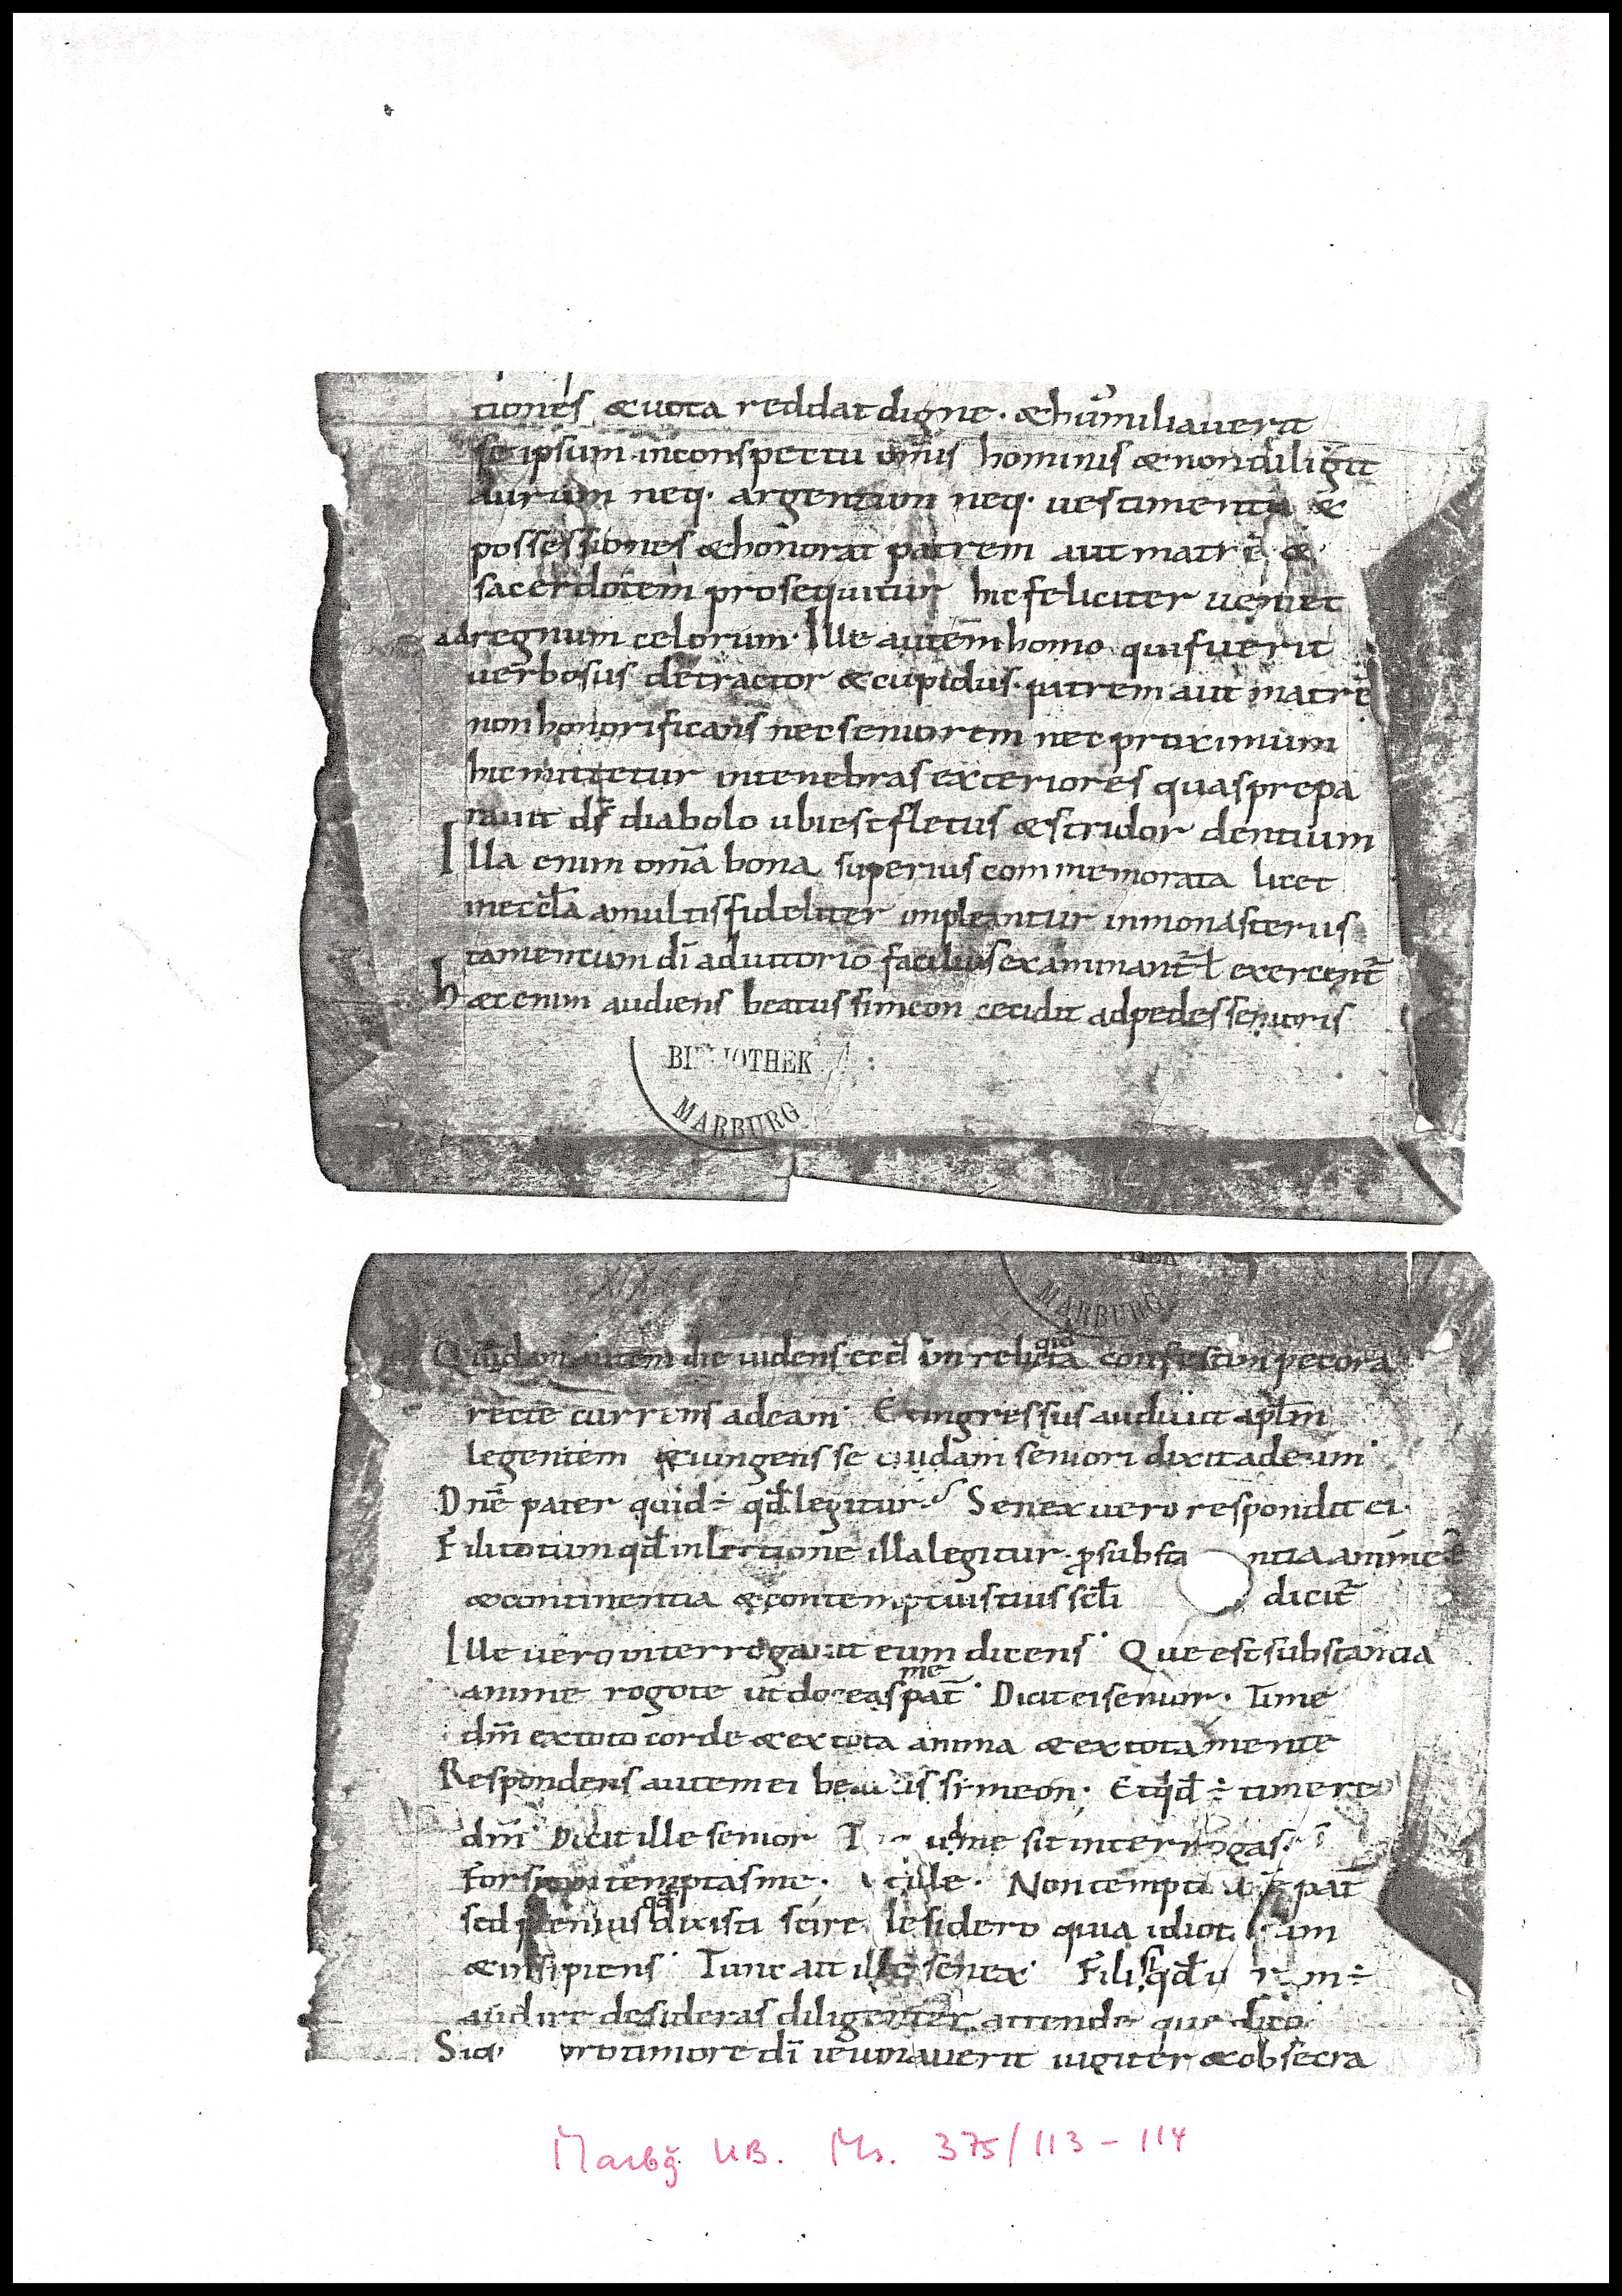 tiones & uota reddat digne · & humiliauerit
se ipsum inconspectu om̄is hominis & non diligit
aurum neq· argentum neq· uestimenta &
possessiones & honorat patrem aut matrē &
sacerdotem prosequitur hic feliciter ueniet
ad regnum celorum · Ille autem homo qui fuerit
uerbosus detractor & cupidus · patrem aut matrē
non honorificans nec seniorem nec proximum
hic mittetur intenebras exteriores quas prepa
rauit d̄s diabolo ubi est fletus & stridor dentium
Illa enim om̄a bona superius commemorata licet
inecc̄la amultis fideliter impleantur inmonasteriis
tamen cum dī adiutorio facilius examinant̄ ł exercent̄
haec enim audiens beatus simeon cecidit adpedes senioris
BIBLIOTHEK
MARBURG
MARBURG
autem die uidens relicta confestim pecora
recte currens adeam · Et ingressus audiuit ap̄lm
legentem & iungens se cuidam seniori dixit adeum ·
Dn̄e pater quid ÷ qd̄ legitur · Senex uero respondit ei ·
Fili totum qd̄ inlectione illa legitur · ꝓ substa ntia anime ·
& continentia & contemptu istius sc̄li dicit̄
Ille uero interrogauit eum dicens · Que est substantia
anime rogo te ut doceas me pat̄ · Dicit ei senior · Time
dm̄ extoto corde & ex tota anima & ex tota mente
Respondens autem ei beatus simeon · Et qd̄ ÷ timere
dm̄ · Dicit ille senior me sit interrogas ·
Forsitan temptas me · ille · Non tempto pat̄
sed plenius qd̄ dixisti scire desidero quia
& insipiens · Tunc ait ille senex · Fili si qd̄
audire desideras diligenter attende que dico
protimore dī ieiunauerit iugiter & obsecra
Marbg UB. Ms. 375/113-114